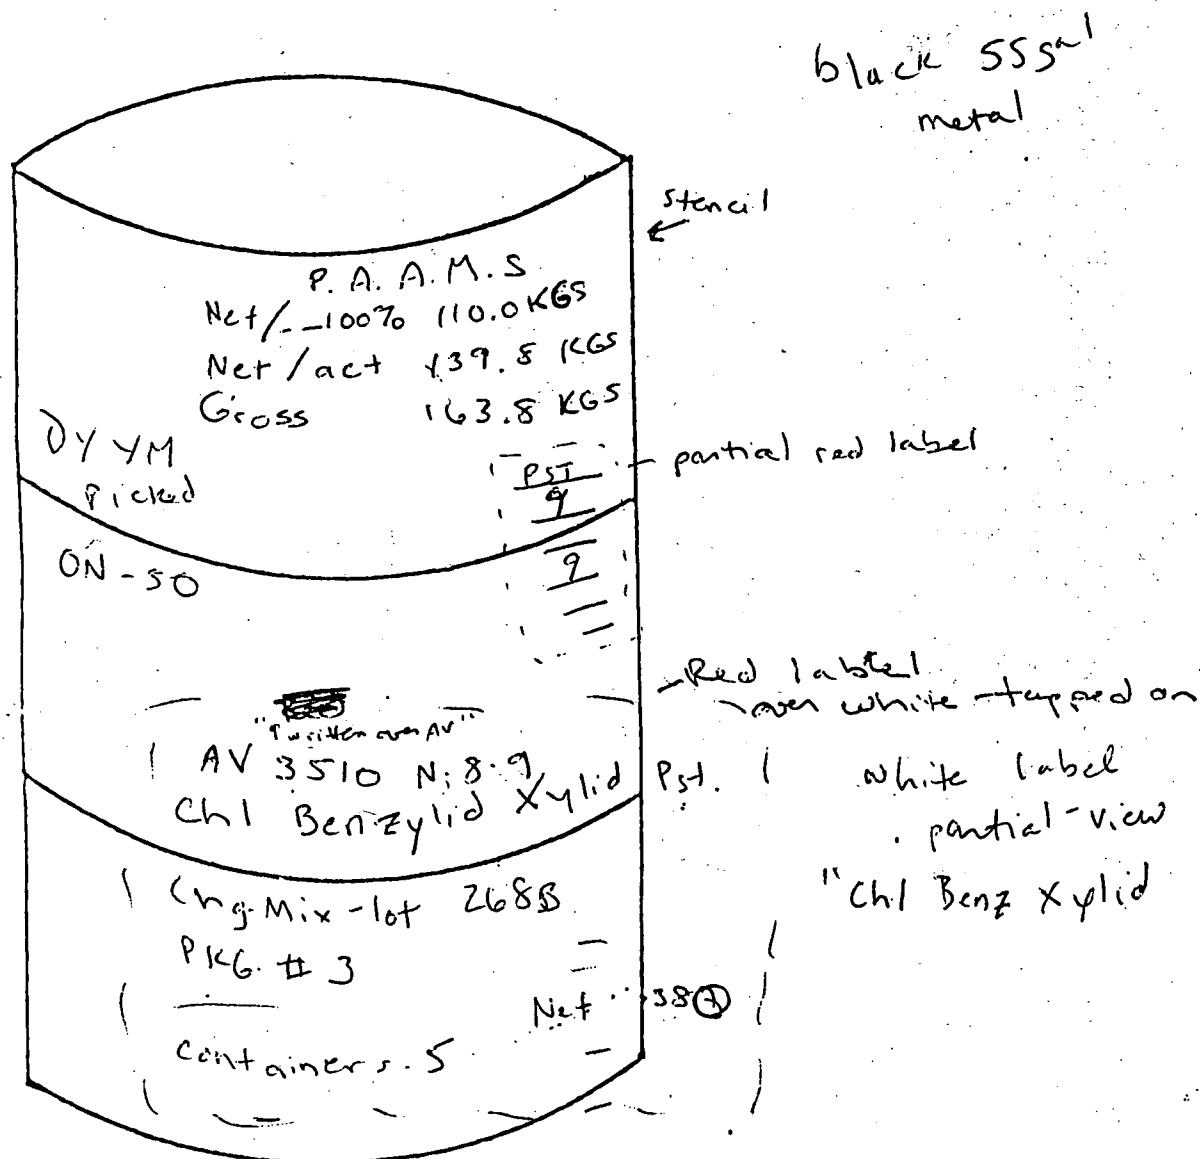 black 55gal
metal
stencil
P.A.A.M.S
Net/_ _100% 110.0 KGS
Net/act 139.8 KGS
Gross 163.8 KGS
YM
Picked
PST
9
partial red label
ON-50
9
Red label
over white - tapped on
"1 written over AV"
AV 3510 N; 8.9
Chl Benzylid Xylid Pst.
white label
partial-view
"Chl Benz Xylid
Chg. Mix-lot 268B
PKG. # 3
Net 38
Containers. 5